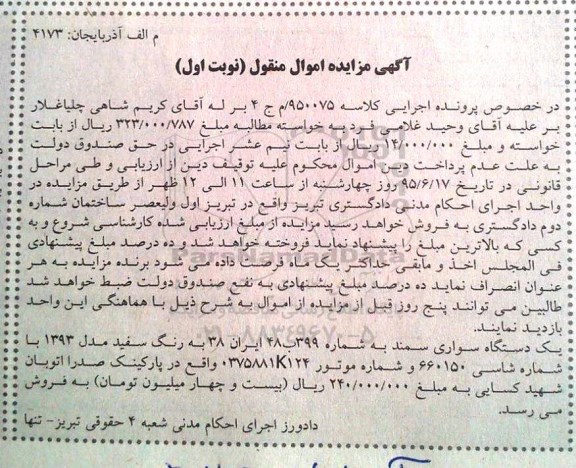 م الف آذربایجان: ۴۱۷۳
آگهی مزایده اموال منقول (نوبت اول)
در خصوص پرونده اجرایی کلاسه ۹۵۰۰۷۵/م ج ۴ بر له آقای کریم شاهی چلیاغلار
بر علیه آقای وحید غلامی فرد به خواسته مطالبه مبلغ ۳۲۳/۰۰۰/۷۸۷ ریال از بابت
خواسته و مبلغ ۱۴/۰۰۰/۰۰۰ ریال از بابت نیم عشر اجرایی در حق صندوق دولت
به علت عدم پرداخت دین اموال محکوم علیه توقیف دین از ارزیابی و طی مراحل
قانونی در تاریخ ۹۵/۶/۱۷ روز چهارشنبه از ساعت ۱۱ الی ۱۲ ظهر از طریق مزایده در
واحد اجرای احکام مدنی دادگستری تبریز واقع در تبریز اول ولیعصر ساختمان شماره
دوم دادگستری به فروش خواهد رسید مزایده از مبلغ ارزیابی شده کارشناسی شروع و به
کسی که بالاترین مبلغ را پیشنهاد نماید فروخته خواهد شد و ده درصد مبلغ پیشنهادی
فی المجلس اخذ و مابقی حداکثر یک ماه فرصت داده می شود برنده مزایده به هر
عنوان انصراف نماید ده درصد مبلغ پیشنهادی به نفع صندوق دولت ضبط خواهد شد
طالبین می توانند پنج روز قبل از مزایده از اموال به شرح ذیل با هماهنگی این واحد
بازدید نمایند.
یک دستگاه سواری سمند به شماره ۳۹۹س۴۸ ایران ۳۸ به رنگ سفید مدل ۱۳۹۳ با
شماره شاسی ۶۶۰۱۵۰ و شماره موتور ۰۳۷۵۸۸۱K۱۲۴ واقع در پارکینک صدرا اتوبان
شهید کسایی به مبلغ ۲۴۰/۰۰۰/۰۰۰ ریال (بیست و چهار میلیون تومان) به فروش
می رسد.
دادورز اجرای احکام مدنی شعبه ۴ حقوقی تبریز- تنها
ParsNamadData
۰۲۱-۸۸۳۴۹۶۷۰-۵